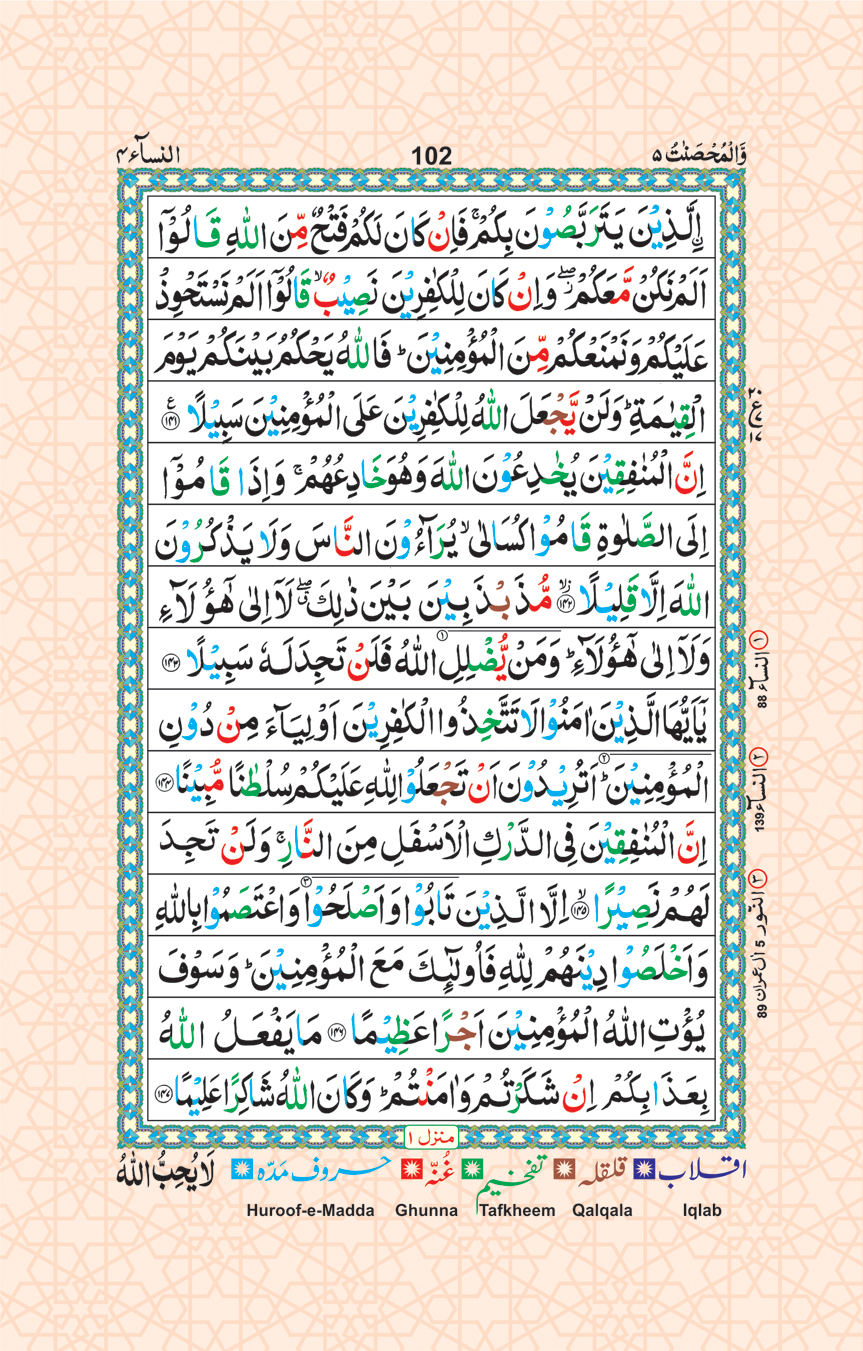 وَّالْمُحْصَنٰتُ ۵ 102 النسآء ۴
اِۨلَّذِيْنَ يَتَرَبَّصُوْنَ بِكُمْ ۚ فَاِنْ كَانَ لَكُمْ فَتْحٌ مِّنَ اللّٰهِ قَالُوْۤا
اَلَمْ نَكُنْ مَّعَكُمْ ۖ وَاِنْ كَانَ لِلْكٰفِرِيْنَ نَصِيْبٌ ۙ قَالُوْۤا اَلَمْ نَسْتَحْوِذْ
عَلَيْكُمْ وَنَمْنَعْكُمْ مِّنَ الْمُؤْمِنِيْنَ ؕ فَاللّٰهُ يَحْكُمُ بَيْنَكُمْ يَوْمَ
الْقِيٰمَةِ ؕ وَلَنْ يَّجْعَلَ اللّٰهُ لِلْكٰفِرِيْنَ عَلَى الْمُؤْمِنِيْنَ سَبِيْلًا ﴿۱۴۱﴾ ع
اِنَّ الْمُنٰفِقِيْنَ يُخٰدِعُوْنَ اللّٰهَ وَهُوَ خَادِعُهُمْ ۚ وَاِذَا قَامُوْۤا
اِلَى الصَّلٰوةِ قَامُوْا كُسَالٰى ۙ يُرَآءُوْنَ النَّاسَ وَلَا يَذْكُرُوْنَ
اللّٰهَ اِلَّا قَلِيْلًا ﴿۱۴۲﴾ مُّذَبْذَبِيْنَ بَيْنَ ذٰلِكَ ۖ لَاۤ اِلٰى هٰۤؤُلَآءِ
وَلَاۤ اِلٰى هٰۤؤُلَآءِ ؕ وَمَنْ يُّضْلِلِ اللّٰهُ فَلَنْ تَجِدَ لَهٗ سَبِيْلًا ﴿۱۴۳﴾
يٰۤاَيُّهَا الَّذِيْنَ اٰمَنُوْا لَا تَتَّخِذُوا الْكٰفِرِيْنَ اَوْلِيَآءَ مِنْ دُوْنِ
الْمُؤْمِنِيْنَ ؕ اَتُرِيْدُوْنَ اَنْ تَجْعَلُوْا لِلّٰهِ عَلَيْكُمْ سُلْطٰنًا مُّبِيْنًا ﴿۱۴۴﴾
اِنَّ الْمُنٰفِقِيْنَ فِى الدَّرْكِ الْاَسْفَلِ مِنَ النَّارِ ۚ وَلَنْ تَجِدَ
لَهُمْ نَصِيْرًا ﴿۱۴۵﴾ اِلَّا الَّذِيْنَ تَابُوْا وَاَصْلَحُوْا وَاعْتَصَمُوْا بِاللّٰهِ
وَاَخْلَصُوْا دِيْنَهُمْ لِلّٰهِ فَاُولٰٓئِكَ مَعَ الْمُؤْمِنِيْنَ ؕ وَسَوْفَ
يُؤْتِ اللّٰهُ الْمُؤْمِنِيْنَ اَجْرًا عَظِيْمًا ﴿۱۴۶﴾ مَا يَفْعَلُ اللّٰهُ
بِعَذَابِكُمْ اِنْ شَكَرْتُمْ وَاٰمَنْتُمْ ؕ وَكَانَ اللّٰهُ شَاكِرًا عَلِيْمًا ﴿۱۴۷﴾
۱ النسآء 88
۲ النسآء 139
۳ النور 5 اٰل عمران 89
منزل ۱
اقلاب قلقله تفخيم غُنّه حروف مَدّه لَا يُحِبُّ اللّٰهُ
Huroof-e-Madda Ghunna Tafkheem Qalqala Iqlab